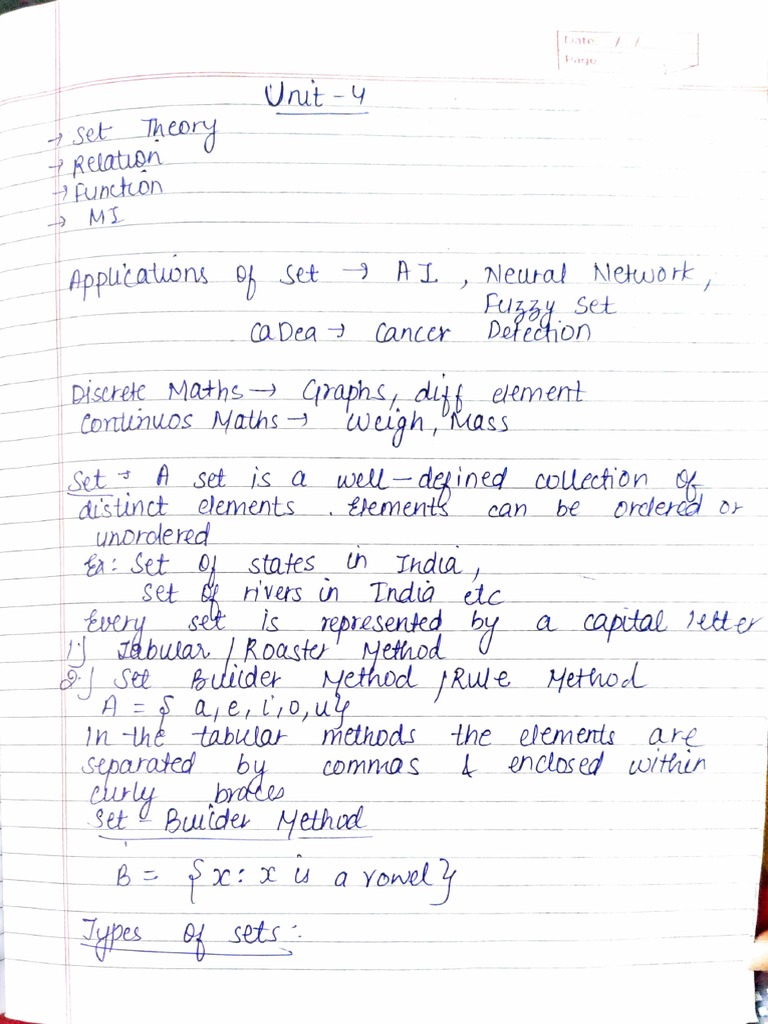 Date / /
Page
Unit - 4
→ Set Theory
→ Relation
→ Function
→ MI
Applications of Set → AI, Neural Network,
Fuzzy Set
CaDea → Cancer Detection
Discrete Maths → Graphs, diff element
Continuos Maths → Weigh, Mass
Set → A set is a well-defined collection of
distinct elements. Elements can be ordered or
unordered
Ex: Set of states in India,
Set of rivers in India etc
Every set is represented by a capital letter
1) Tabular / Roaster Method
2) Set Builder Method / Rule Method
A = { a, e, i, o, u}
In the tabular methods the elements are
separated by commas & enclosed within
curly braces
Set - Builder Method
B = {x: x is a vowel}
Types of sets: